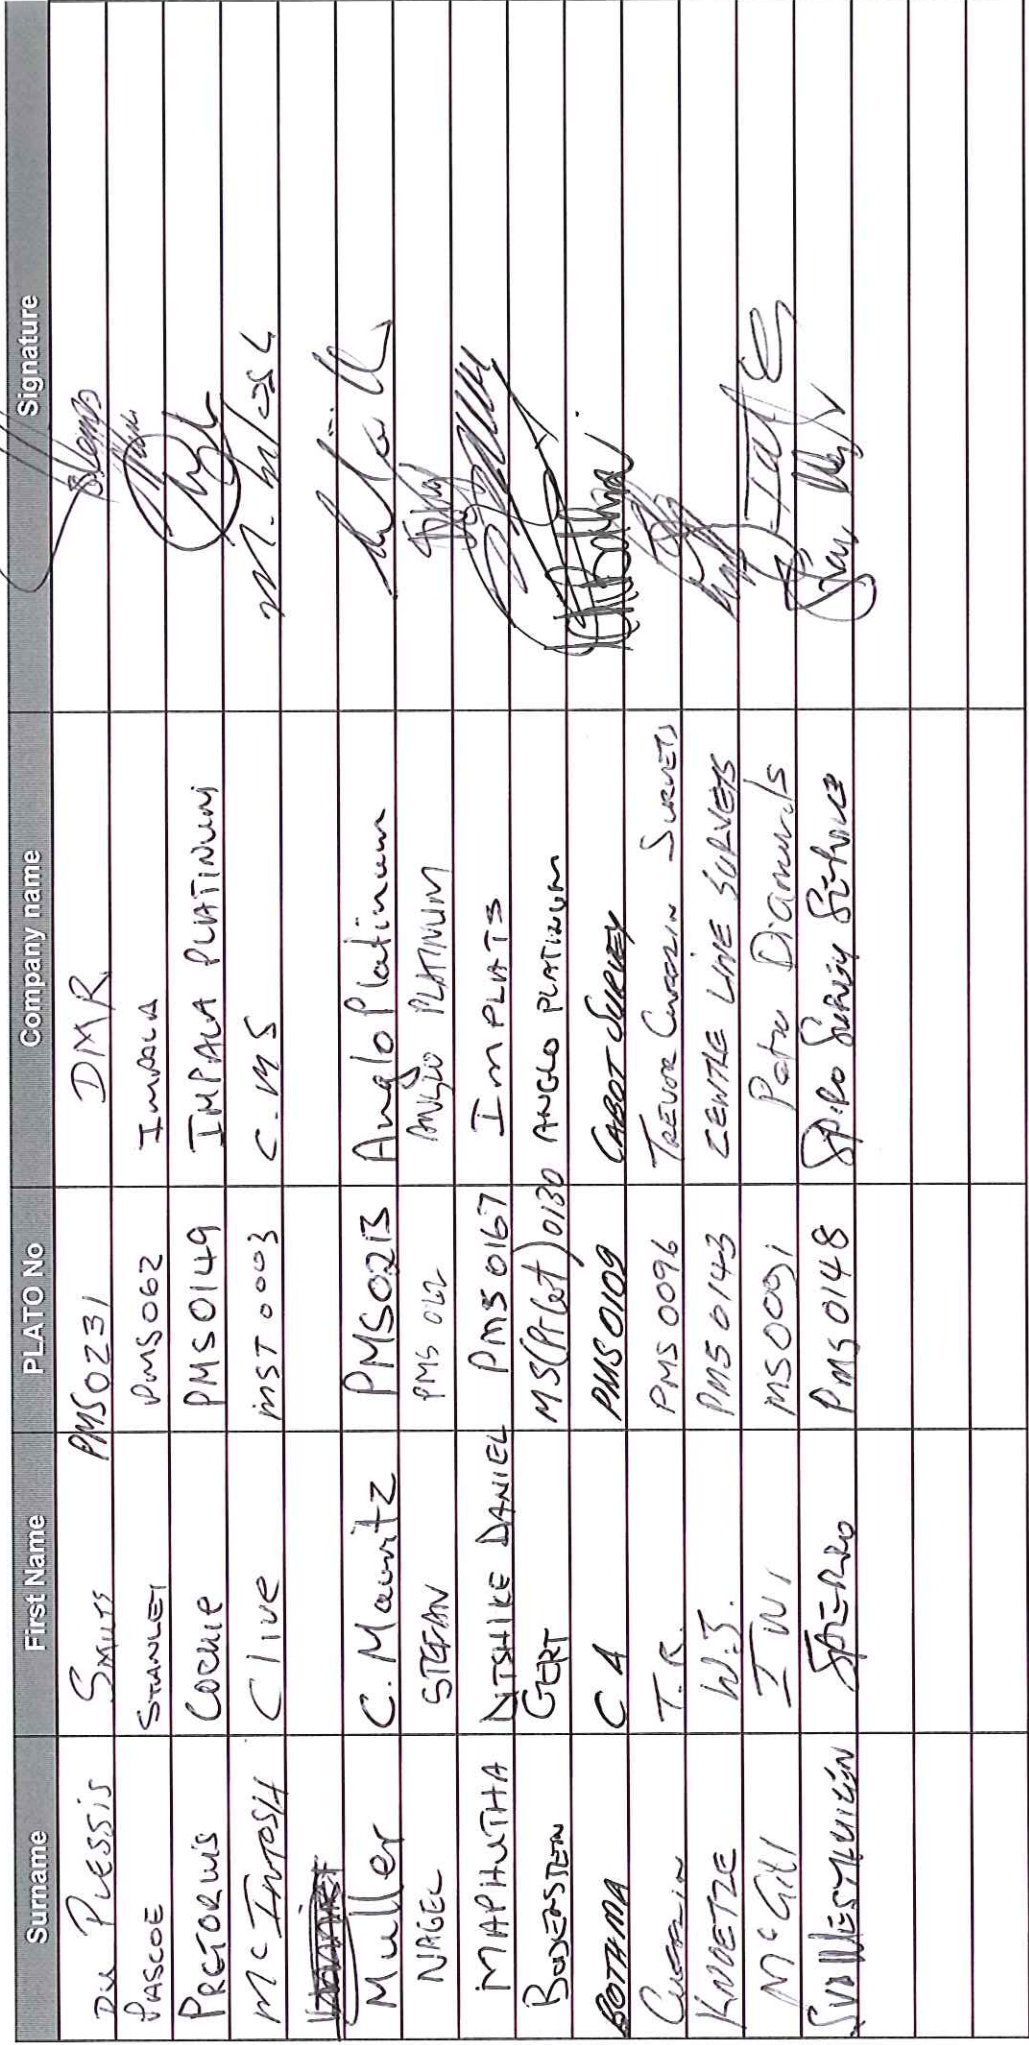 Surname First Name PLATO No Company name Signature
Du Plessis Smuts PMS0231 DMR
PASCOE STANLEY PMS062 IMPALA
PRETORIUS Cockie PMS0149 IMPALA PLATINUM
Mc INTOSH Clive MST0003 C.M.S
Muller C. Mauritz PMS0213 Anglo Platinum
NAGEL STEFAN PMS ANGLO PLATINUM
MAPHUTHA NTSHIKE DANIEL PMS0167 IMPLATS
BODENSTEIN GERT MS(PrCert)0130 ANGLO PLATINUM
BOTHMA C A PMS0109 CABOT SURVEY
T.R. PMS0096 TREVOR SURVEYS
KNOETZE W.J. PMS0143 CENTRE LINE SURVEYS
McGill I W MS0091 Petra Diamonds
PMS0148 Spiro Survey Service